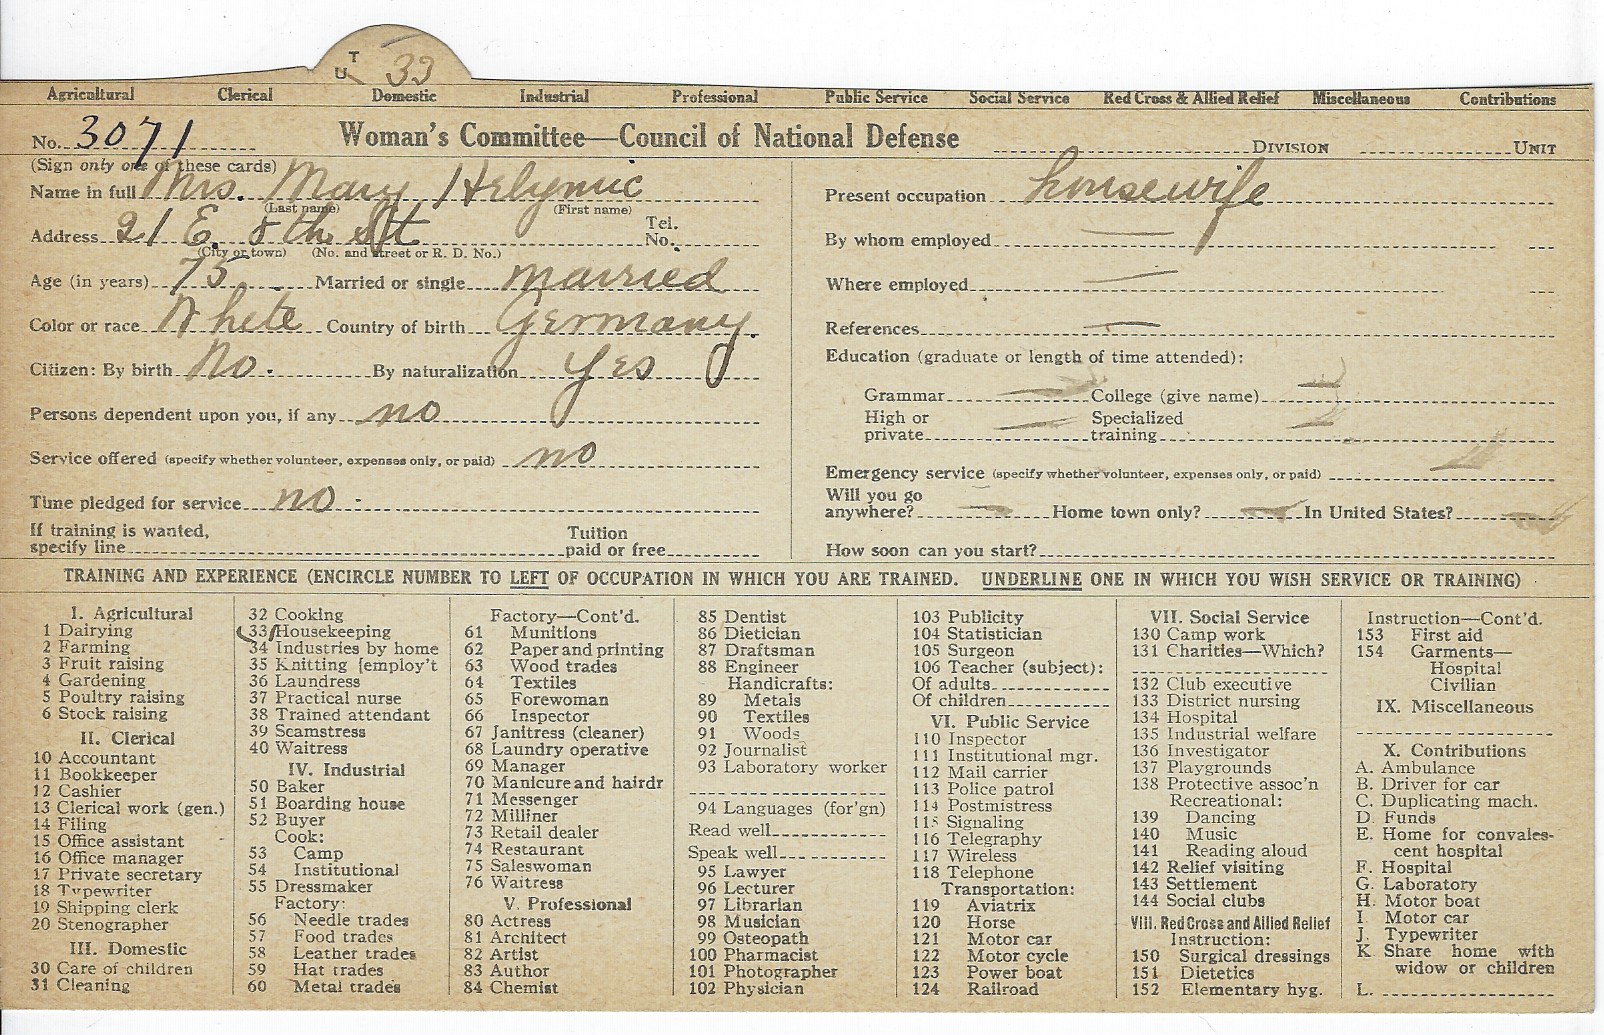 T
U 33
Agricultural Clerical Domestic Industrial Professional Public Service Social Service Red Cross & Allied Relief Miscellaneous Contributions
No. 3071 Woman's Committee—Council of National Defense DIVISION UNIT
(Sign only one of these cards)
Name in full Mrs. Mary
(Last name) (First name)
Address 21 E. 8 th St Tel. No.
(City or town) (No. and street or R. D. No.)
Age (in years) 75 Married or single married
Color or race White Country of birth Germany.
Citizen: By birth No. By naturalization yes
Persons dependent upon you, if any no
Service offered (specify whether volunteer, expenses only, or paid) no
Time pledged for service no -
If training is wanted,
specify line Tuition paid or free
Present occupation housewife
By whom employed —
Where employed —
References —
Education (graduate or length of time attended):
Grammar College (give name)
High or private Specialized training
Emergency service (specify whether volunteer, expenses only, or paid)
Will you go
anywhere? Home town only? In United States?
How soon can you start?
TRAINING AND EXPERIENCE (ENCIRCLE NUMBER TO LEFT OF OCCUPATION IN WHICH YOU ARE TRAINED. UNDERLINE ONE IN WHICH YOU WISH SERVICE OR TRAINING)
I. Agricultural
1 Dairying
2 Farming
3 Fruit raising
4 Gardening
5 Poultry raising
6 Stock raising
II. Clerical
10 Accountant
11 Bookkeeper
12 Cashier
13 Clerical work (gen.)
14 Filing
15 Office assistant
16 Office manager
17 Private secretary
18 Typewriter
19 Shipping clerk
20 Stenographer
III. Domestic
30 Care of children
31 Cleaning
32 Cooking
33 Housekeeping
34 Industries by home
35 Knitting [employ't
36 Laundress
37 Practical nurse
38 Trained attendant
39 Seamstress
40 Waitress
IV. Industrial
50 Baker
51 Boarding house
52 Buyer
Cook:
53 Camp
54 Institutional
55 Dressmaker
Factory:
56 Needle trades
57 Food trades
58 Leather trades
59 Hat trades
60 Metal trades
Factory—Cont'd.
61 Munitions
62 Paper and printing
63 Wood trades
64 Textiles
65 Forewoman
66 Inspector
67 Janitress (cleaner)
68 Laundry operative
69 Manager
70 Manicure and hairdr
71 Messenger
72 Milliner
73 Retail dealer
74 Restaurant
75 Saleswoman
76 Waitress
V. Professional
80 Actress
81 Architect
82 Artist
83 Author
84 Chemist
85 Dentist
86 Dietician
87 Draftsman
88 Engineer
Handicrafts:
89 Metals
90 Textiles
91 Woods
92 Journalist
93 Laboratory worker
94 Languages (for'gn)
Read well
Speak well
95 Lawyer
96 Lecturer
97 Librarian
98 Musician
99 Osteopath
100 Pharmacist
101 Photographer
102 Physician
103 Publicity
104 Statistician
105 Surgeon
106 Teacher (subject):
Of adults
Of children
VI. Public Service
110 Inspector
111 Institutional mgr.
112 Mail carrier
113 Police patrol
114 Postmistress
115 Signaling
116 Telegraphy
117 Wireless
118 Telephone
Transportation:
119 Aviatrix
120 Horse
121 Motor car
122 Motor cycle
123 Power boat
124 Railroad
VII. Social Service
130 Camp work
131 Charities—Which?
132 Club executive
133 District nursing
134 Hospital
135 Industrial welfare
136 Investigator
137 Playgrounds
138 Protective assoc'n
Recreational:
139 Dancing
140 Music
141 Reading aloud
142 Relief visiting
143 Settlement
144 Social clubs
VIII. Red Cross and Allied Relief
Instruction:
150 Surgical dressings
151 Dietetics
152 Elementary hyg.
Instruction—Cont'd.
153 First aid
154 Garments—
Hospital
Civilian
IX. Miscellaneous
X. Contributions
A. Ambulance
B. Driver for car
C. Duplicating mach.
D. Funds
E. Home for convales-
cent hospital
F. Hospital
G. Laboratory
H. Motor boat
I. Motor car
J. Typewriter
K. Share home with
widow or children
L.